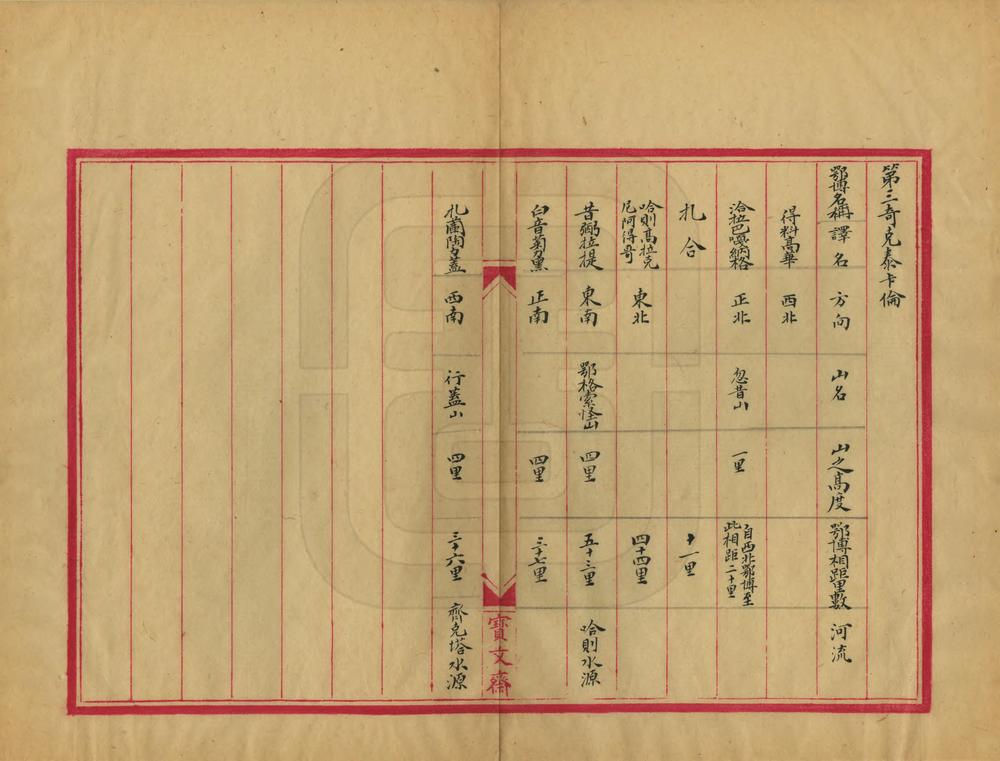 第三奇克泰卡倫
鄂博名稱譯名 方向 山名 山之高度 鄂博相距里數 河流
得料高華 西北
洽拉巴嘎納格 正北 忽昔山 一里 自西北鄂博至此相距二十里
札合 十一里
哈則高拉克尼阿得哥 東北 四十四里
昔弼拉提 東南 鄂格索怪山 四里 五十三里 哈則水源
白音菊魯黑 正南 四里 三十七里
寶文齋
札蘭陶蓋 西南 行蓋山 四里 三十六里 齊克塔水源